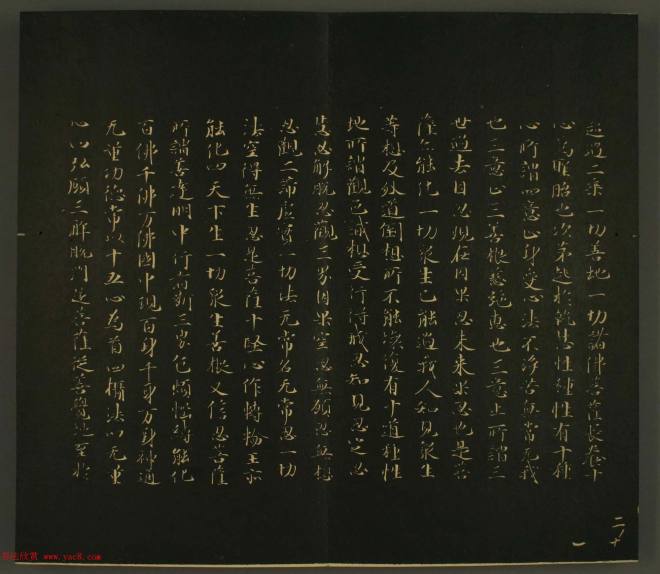 超過二乘一切善地一切諸佛菩薩長養十
心為聖胎也次第起於乾慧性種性有十種
心所謂四意止身受心法不淨苦無常无我
也三意止三善根慈施慧也三意止所謂三
世過去因忍現在因果忍未來果忍也是菩
薩亦能化一切眾生已能過我人知見眾生
等想及外道倒想所不能壞復有十道種性
地所謂觀色識想受行得戒忍知見忍定忍
慧忍解脫忍觀三界因果空忍無願忍無想
忍觀二諦虛實一切法无常名无常忍一切
法空得無生忍是菩薩十堅心作轉輪王亦
能化四天下生一切眾生善根又信忍菩薩
所謂善達明中行者斷三界色煩惱縛能化
百佛千佛万佛國中現百身千身万身神通
无量功德常以十五心為首四攝法四无量
心四弘願三解脫門是菩薩從善覺地至於
二ノ十
一
書法欣賞 www.yac8.com